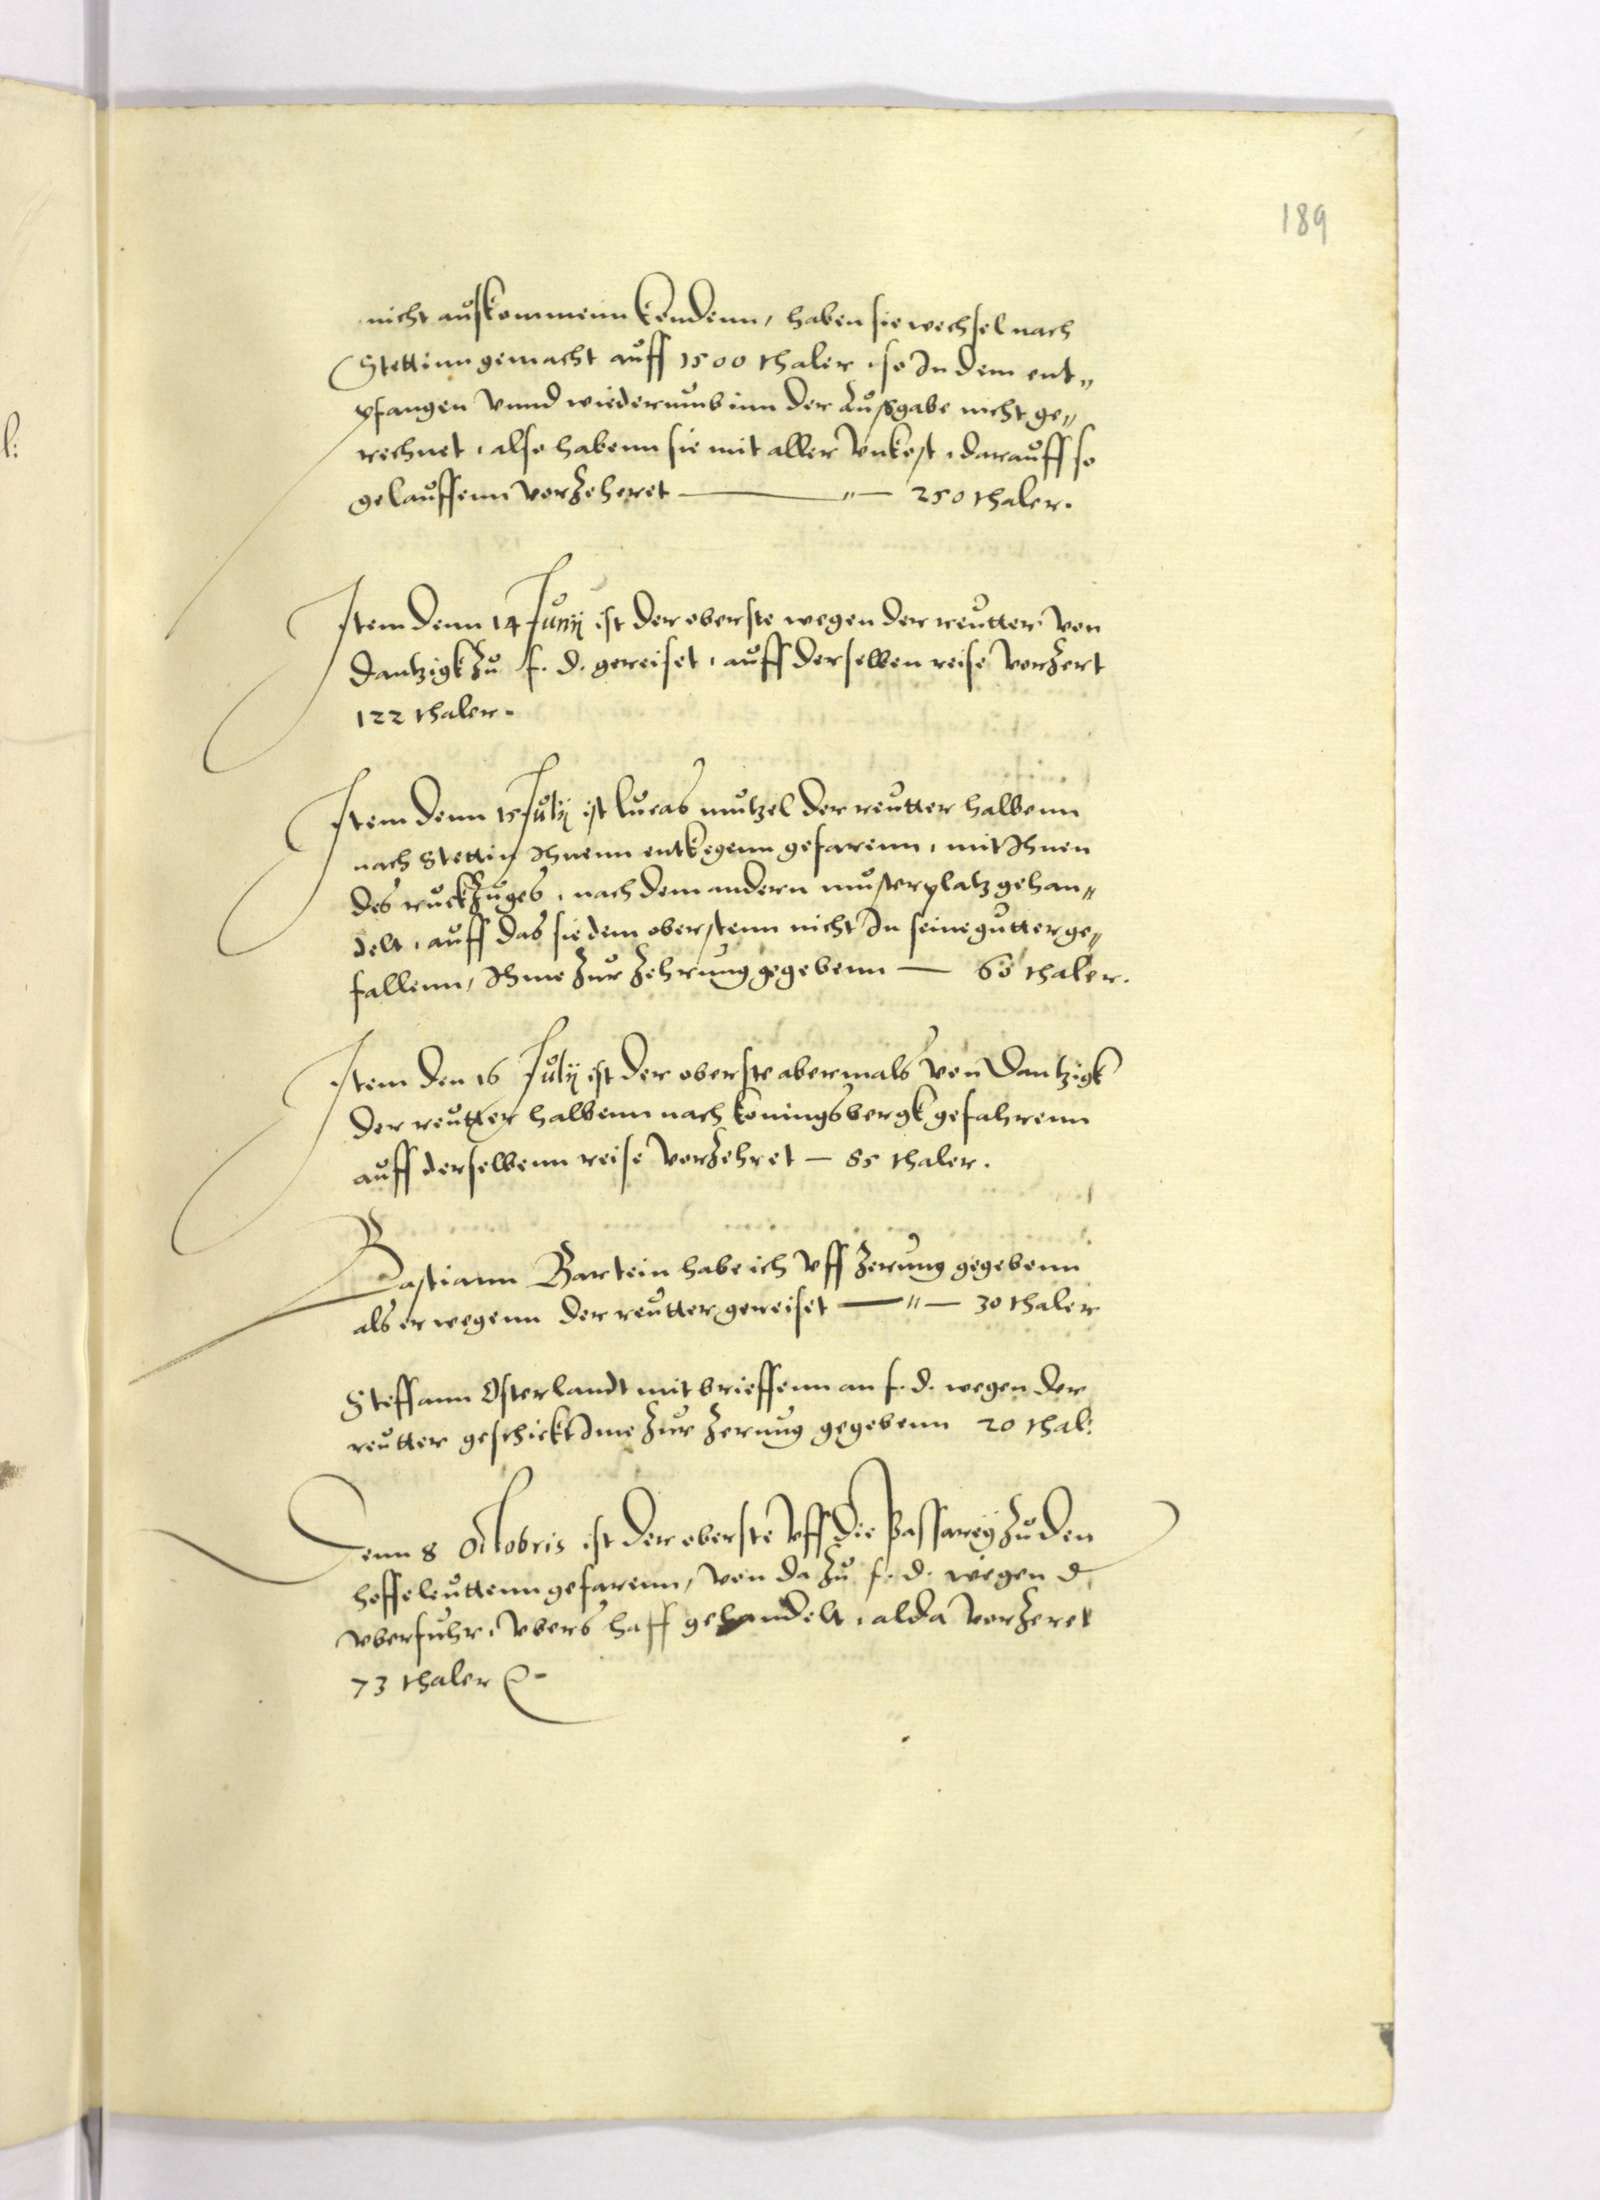 189
nicht auskommenn kondenn, haben sie wechsel nach
Stettinn gemacht auff 1500 thaler, so In dem ent„
pfangen vnnd wiederumb inn der Außgabe nicht ge„
rechnet, also habenn sie mit aller vnkost, darauff so
gelauffenn vorzeheret — „ — 250 thaler.
Item denn 14 Junij ist der oberste wegen der reutter von
Dantzigk zu f. d. gereiset, auff derselben reise vorzert
122 thaler.
Item denn 15 Julij ist Lucas mutzel der reutter halbenn
nach Stettin Ihnenn entkegenn gefarenn, mit Ihnen
des ruckzuges, nach dem andern musterplatz gehan„
delt, auff das sie dem oberstenn nicht In seine gutter ge„
fallenn, Ihme zur zehrung gegebenn — 60 thaler.
Item den 16 Julij ist der oberste abermals von Dantzigk
der reutter halbenn nach konningsbergk gefahrenn
auff derselbenn reise vorzehret — 85 thaler.
Bastiann Bartein habe ich vff zerung gegebenn
als er wegenn der reutter gereiset — „ — 30 thaler
Steffann Osterlandt mit brieffenn an f. d. wegen der
reutter geschickt Ime zur zerung gegebenn 20 thal:
Denn 8 Octobris ist der oberste vff die Passarey zu den
hoffeleuttenn gefarenn, von da zu f. d. wegen d
vberfuhr, vbers haff gehandelt, alda vorzeret
73 thaler
l: